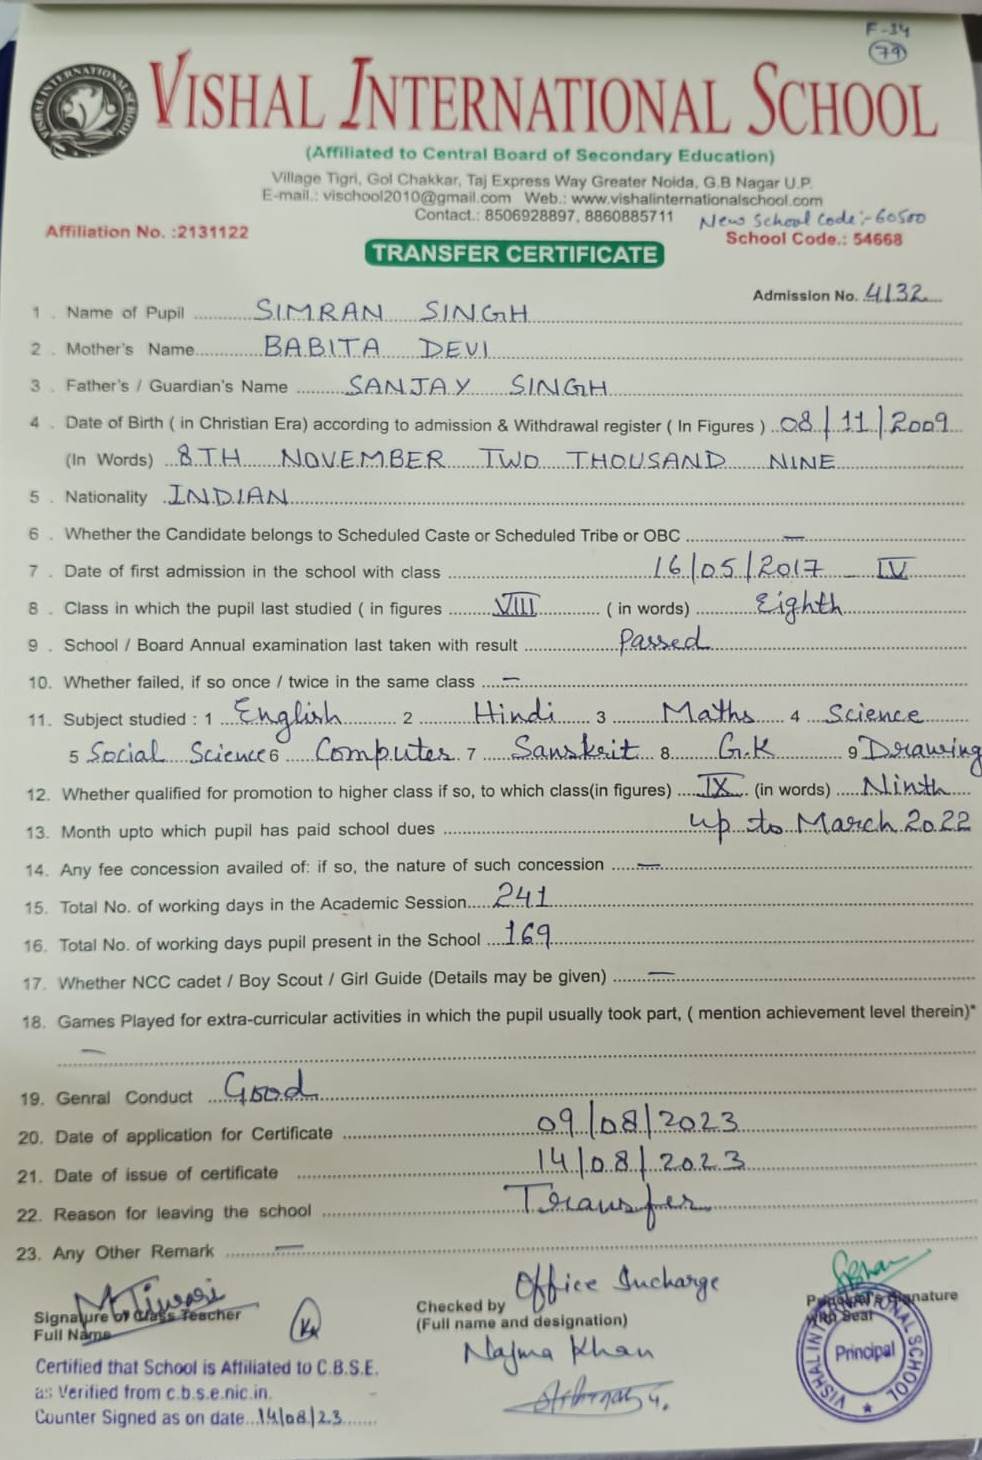 F-34
79
VISHAL INTERNATIONAL SCHOOL
(Affiliated to Central Board of Secondary Education)
Village Tigri, Gol Chakkar, Taj Express Way Greater Noida, G.B Nagar U.P.
E-mail.: vischool2010@gmail.com Web.: www.vishalinternationalschool.com
Contact.: 8506928897, 8860885711 New School Code:-60500
Affiliation No. :2131122 School Code.: 54668
TRANSFER CERTIFICATE
Admission No. 4132
1 . Name of Pupil SIMRAN SINGH
2 . Mother's Name BABITA DEVI
3 . Father's / Guardian's Name SANJAY SINGH
4 . Date of Birth ( in Christian Era) according to admission & Withdrawal register ( In Figures ) 08/11/2009
(In Words) 8TH NOVEMBER TWO THOUSAND NINE
5 . Nationality INDIAN
6 . Whether the Candidate belongs to Scheduled Caste or Scheduled Tribe or OBC —
7 . Date of first admission in the school with class 16/05/2017 - IV
8 . Class in which the pupil last studied ( in figures VIII ( in words) Eighth
9 . School / Board Annual examination last taken with result Passed
10. Whether failed, if so once / twice in the same class —
11. Subject studied : 1 English 2 Hindi 3 Maths 4 Science
5 Social Science 6 Computer 7 Sanskrit 8 G.K 9 Drawing
12. Whether qualified for promotion to higher class if so, to which class(in figures) IX (in words) Ninth
13. Month upto which pupil has paid school dues up to March 2022
14. Any fee concession availed of: if so, the nature of such concession —
15. Total No. of working days in the Academic Session 241
16. Total No. of working days pupil present in the School 169
17. Whether NCC cadet / Boy Scout / Girl Guide (Details may be given) —
18. Games Played for extra-curricular activities in which the pupil usually took part, ( mention achievement level therein)*
—
19. Genral Conduct Good
20. Date of application for Certificate 09/08/2023
21. Date of issue of certificate 14/08/2023
22. Reason for leaving the school Transfer
23. Any Other Remark —
MTiwari
Signature of Class Teacher
Full Name
Office Incharge
Checked by
(Full name and designation)
Najma Khan
Principal's Signature
With Seal
VISHAL INTERNATIONAL SCHOOL
Principal
Certified that School is Affiliated to C.B.S.E.
as Verified from c.b.s.e.nic.in.
Counter Signed as on date 14/08/23